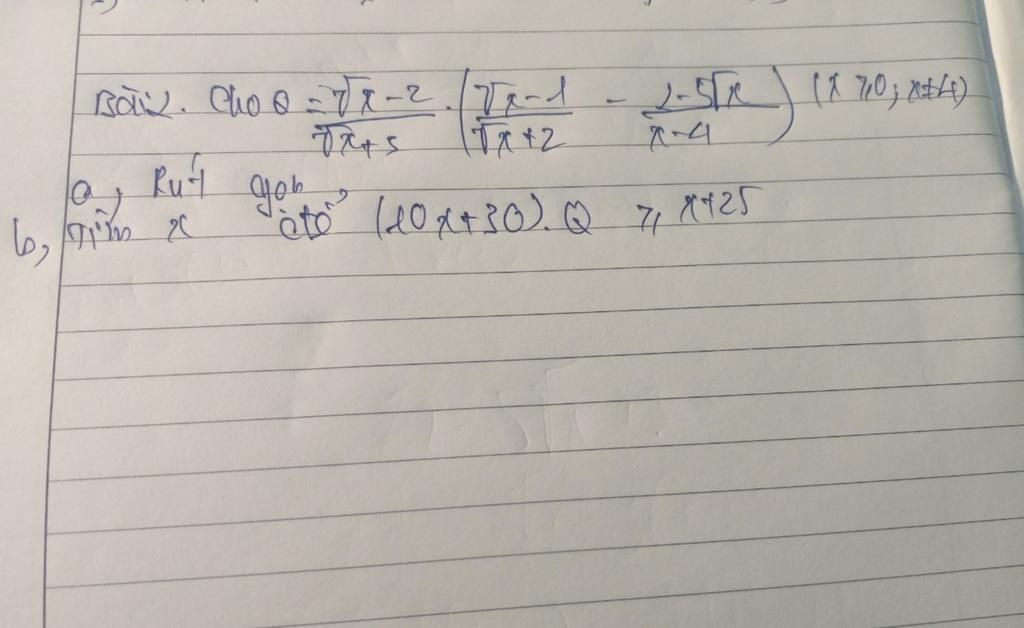 Bài 2. Cho Q = \frac{\sqrt{x}-2}{\sqrt{x}+3} . \left( \frac{\sqrt{x}-1}{\sqrt{x}+2} - \frac{2-5\sqrt{x}}{x-4} \right) (x ⩾ 0; x ≠ 4)
a, Rút gọn
b, Tìm x để (10x+30). Q ⩾ x+25